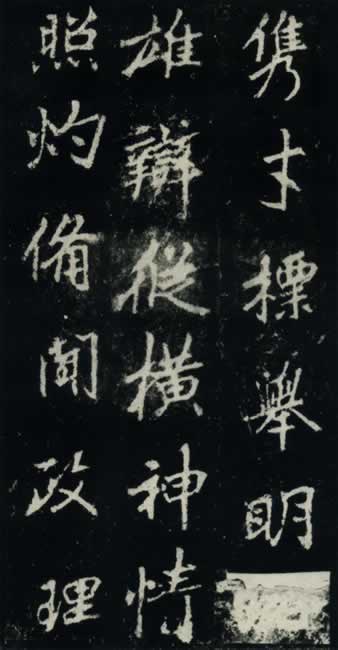 儁才標舉明
雄辯縱橫神情
照灼備閑政理